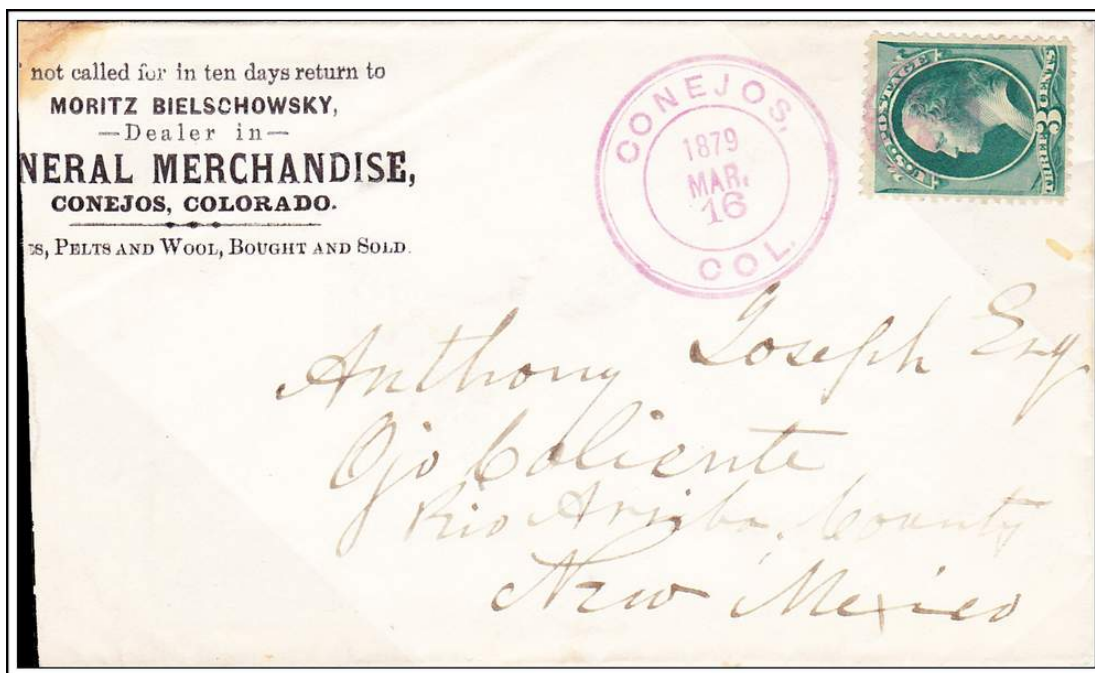 not called for in ten days return to
MORITZ BIELSCHOWSKY,
—Dealer in—
NERAL MERCHANDISE,
CONEJOS, COLORADO.
ES, PELTS AND WOOL, BOUGHT AND SOLD.
CONEJOS,
1879
MAR.
16
COL.
U.S. POSTAGE
THREE 3 CENTS
Anthony Joseph Esq
Ojo Caliente
Rio Arriba County
New Mexico